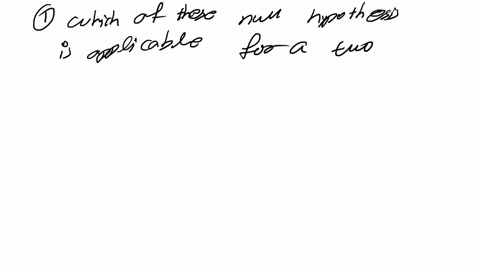 ① which of these null hypothesis
is applicable for a two